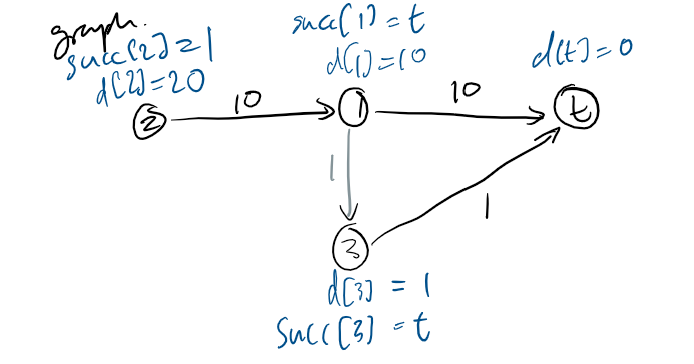 graph.
succ[2] = 1
d[2] = 20
succ[1] = t
d[1] = 10
d[t] = 0
10
10
2
1
t
1
1
3
d[3] = 1
Succ[3] = t